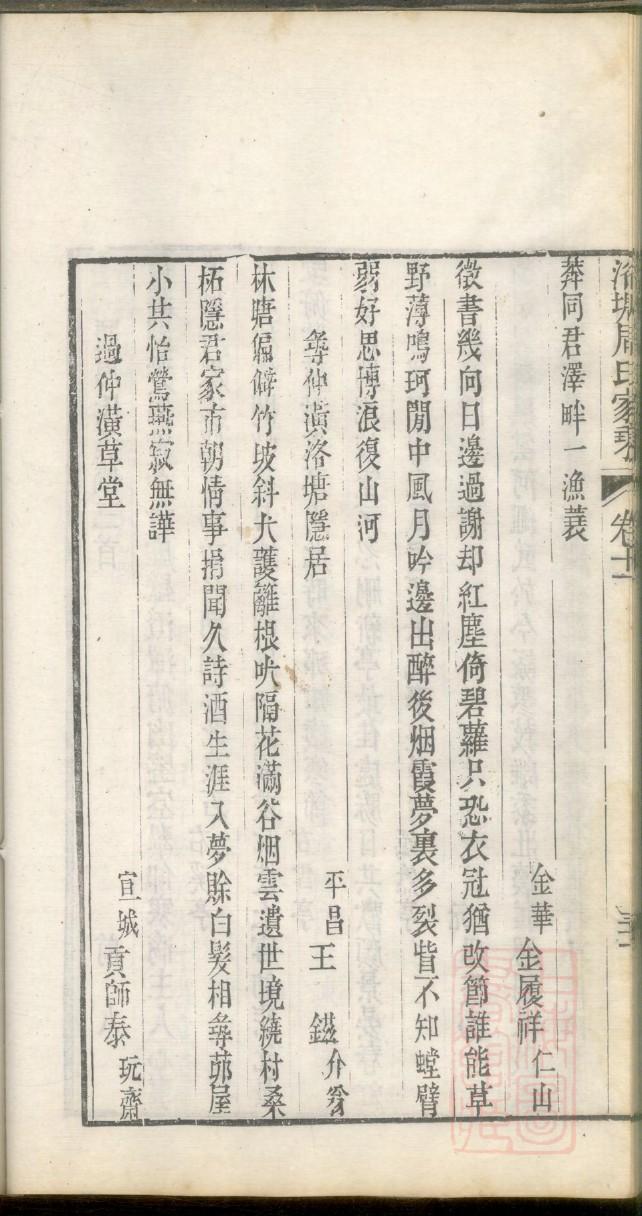 洛塘周氏家乘 卷十一
莽同君澤畔一漁蓑
金華 金履祥 仁山
徵書幾向日邊過謝却紅塵倚碧蘿只恐衣冠猶改節誰能草
野薄鳴珂閒中風月吟邊出醉後烟霞夢裏多裂眥不知螳臂
弱好思博浪復山河
尋仲潢洛塘隱居
平昌王 鎡 介翁
林塘偏僻竹坡斜犬護籬根吠隔花滿谷烟雲遺世境繞村桑
柘隱君家市朝情事捐聞久詩酒生涯入夢賒白髮相尋茆屋
小共怡鶯燕寂無譁
過仲潢草堂
宣城 貢師泰 玩齋